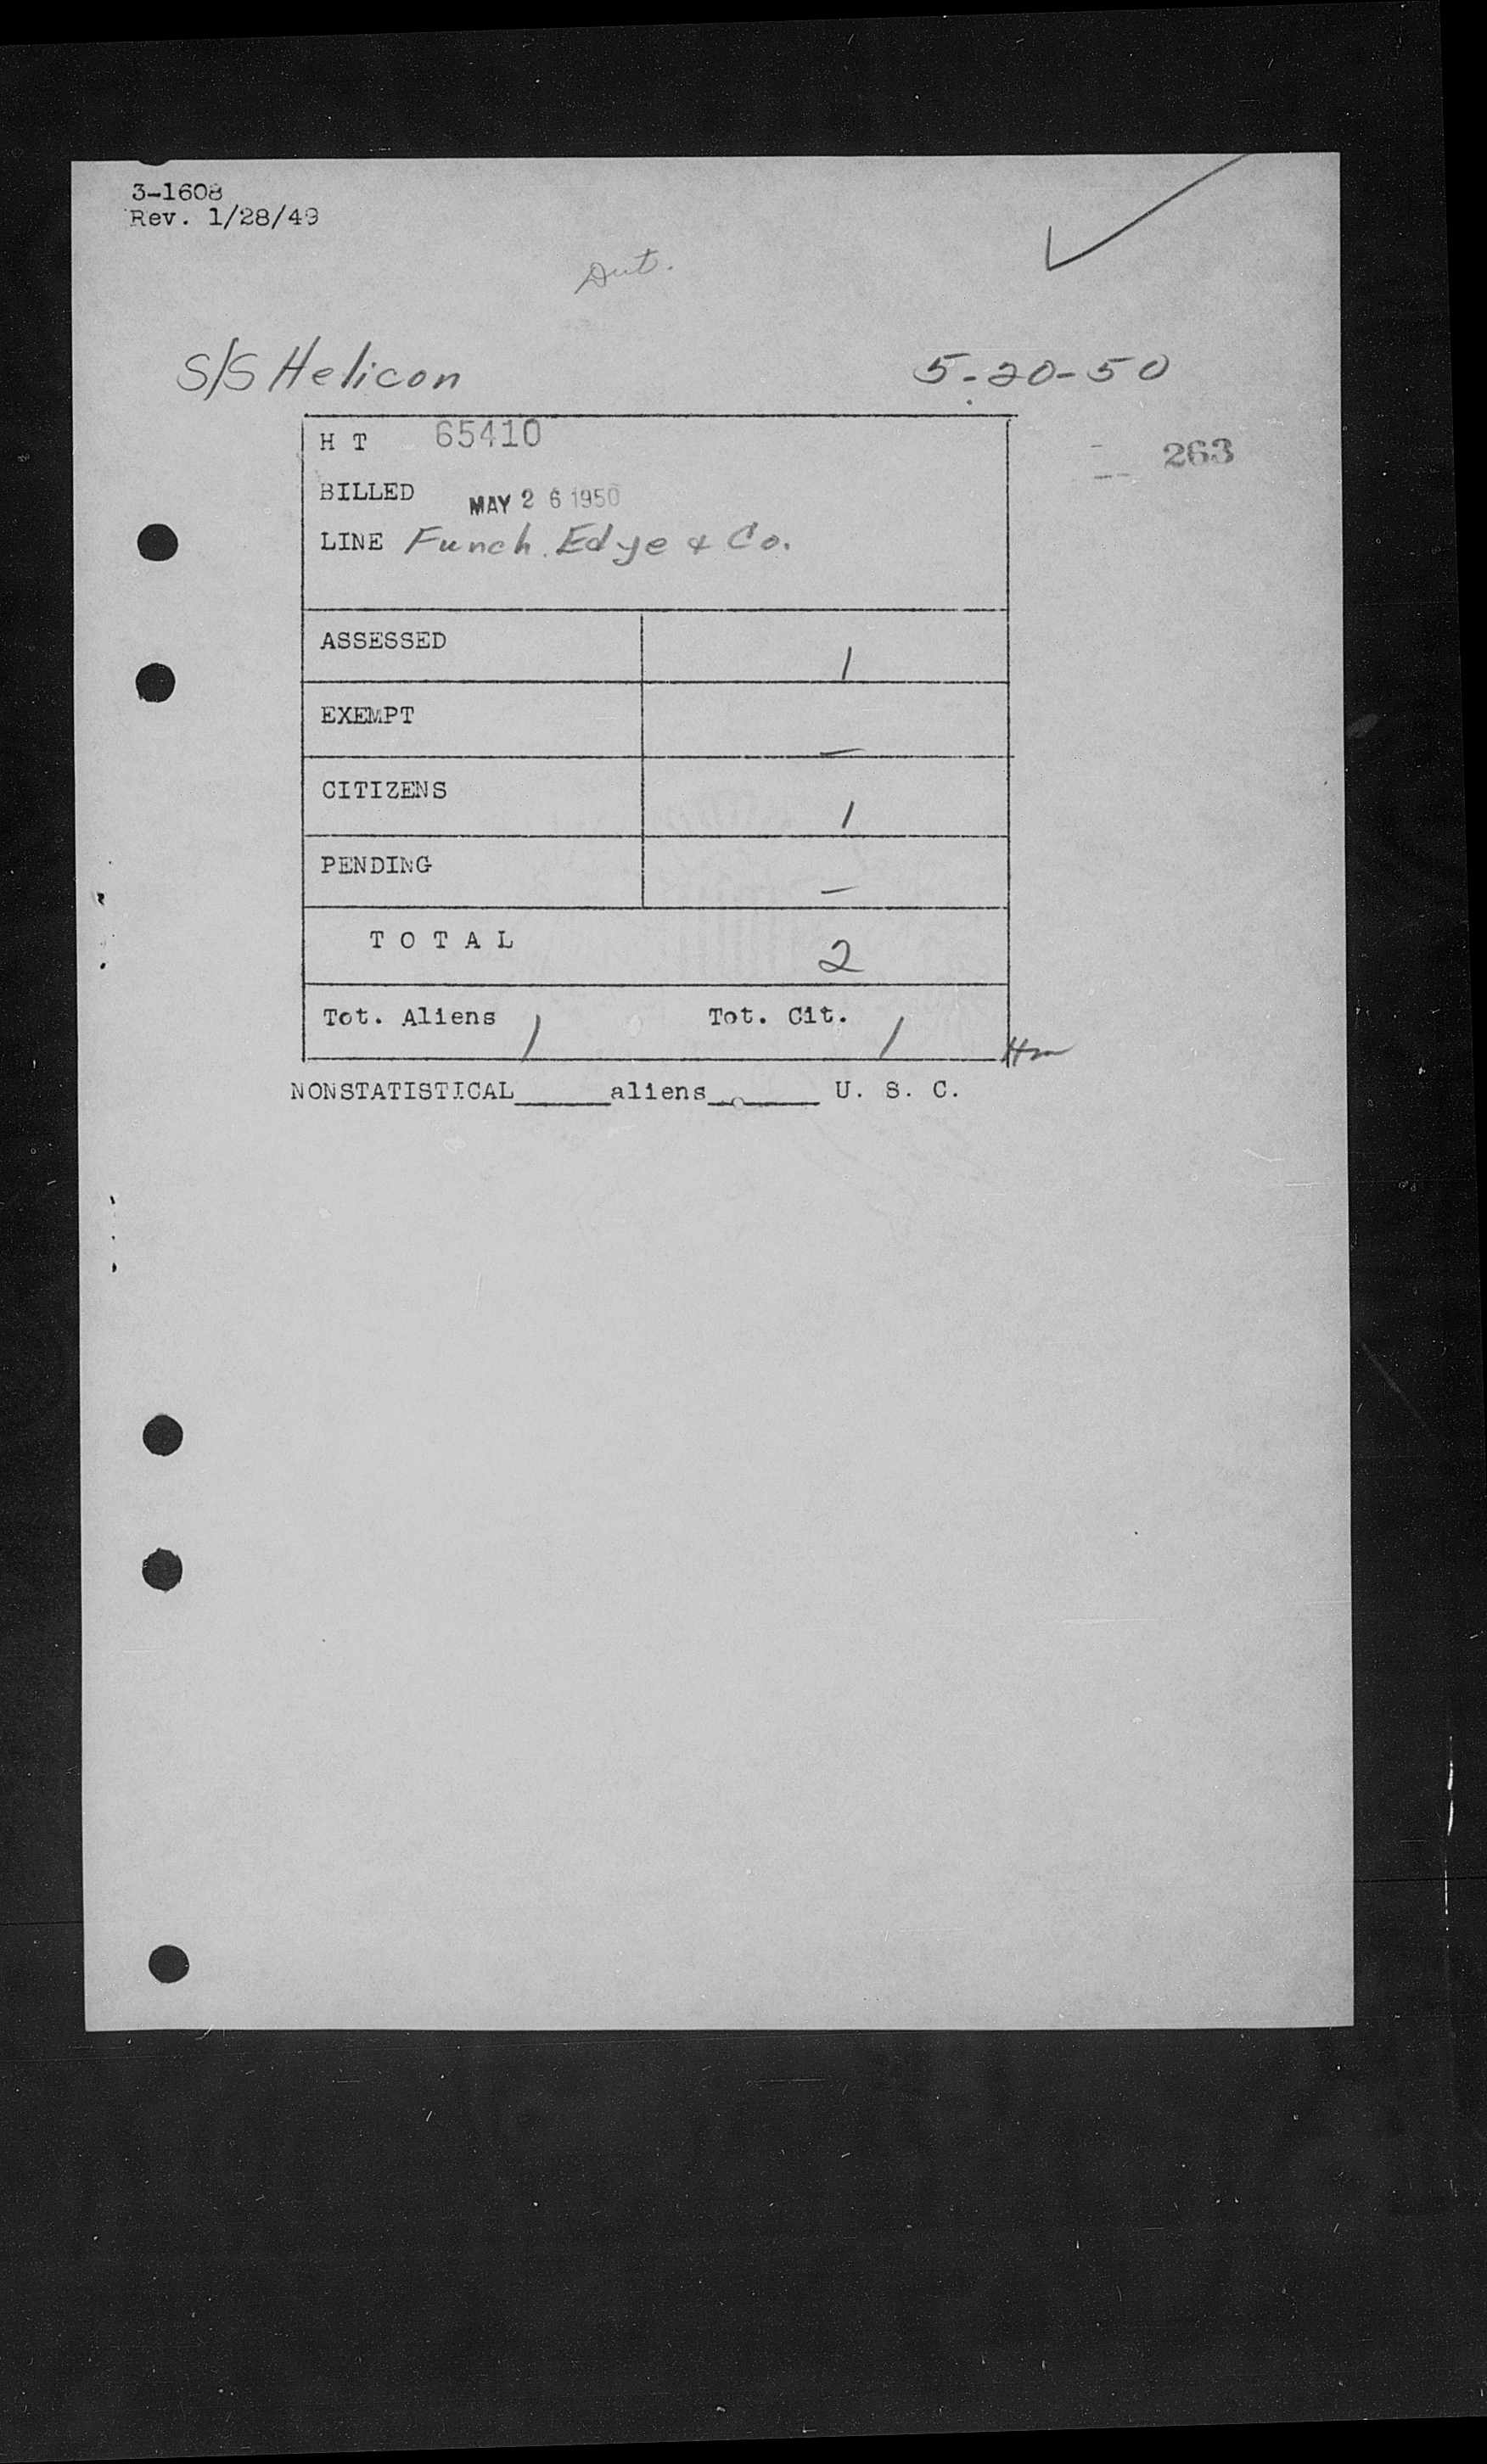 3-1608
Rev. 1/28/49
Dut.
S/S Helicon 5-20-50
H T 65410
263
BILLED MAY 26 1950
LINE Funch, Edye & Co.
ASSESSED 1
EXEMPT —
CITIZENS 1
PENDING —
T O T A L 2
Tot. Aliens 1 Tot. Cit. 1
NONSTATISTICAL______aliens_______ U. S. C.